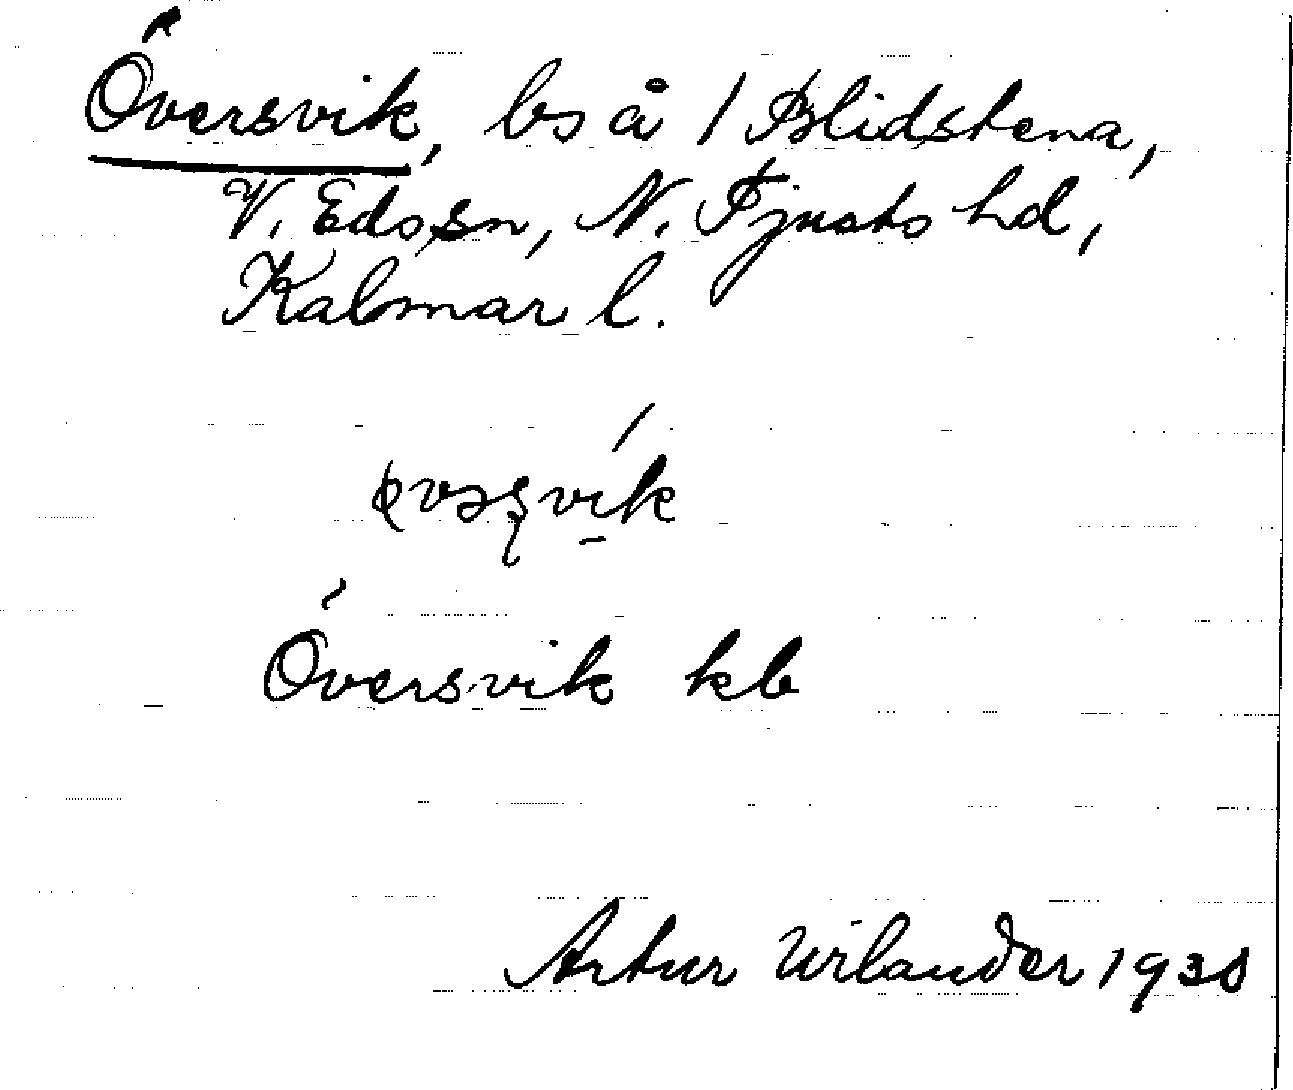 Översvik, bs å / Blidstena,
V. Eds sn, N. Tjusts hd,
Kalmar l.
Översvik kb
Artur Wilander 1938